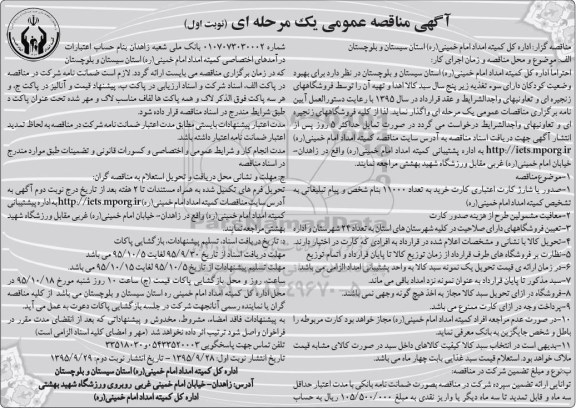 آگهی مناقصه عمومی یک مرحله ای (نوبت اول)
مناقصه گزار: اداره کل کمیته امداد امام خمینی(ره) استان سیستان و بلوچستان
الف: موضوع و محل مناقصه و زمان اجرای کار:
احتراما اداره کل کمیته امداد امام خمینی(ره) استان سیستان و بلوچستان در نظر دارد برای بهبود
وضعیت کودکان دارای سوء تغذیه زیر پنج سال سبد کالا اهدا و تهیه آن را توسط فروشگاههای
زنجیره ای و تعاونیهای واجدالشرایط و عقد قرارداد در سال ۱۳۹۵ با رعایت دستورالعمل آیین
نامه برگزاری مناقصات عمومی یک مرحله ای واگذار نماید. لذا از کلیه فروشگاههای زنجیره
ای و تعاونیهای واجدالشرایط درخواست می گردد در صورت تمایل حداکثر ۵ روز پس از
انتشار آگهی جهت دریافت اسناد مناقصه به آدرس سایت مناقصه کمیته امداد امام خمینی(ره)
http://iets.mporg.ir به اداره پشتیبانی کمیته امداد امام خمینی (ره) واقع در زاهدان-
خیابان امام خمینی(ره) غربی مقابل ورزشگاه شهید بهشتی مراجعه نمایند.
۱-موضوع مناقصه
۱-صدور یا شارژ کارت اعتباری کارت خرید به تعداد ۱۱۰۰۰ بنام شخص و پیام تبلیغاتی به
تشخیص کمیته امداد امام خمینی(ره)
۲-معافیت مشمولین طرح از هزینه صدور کارت
۳-تعیین فروشگاههای دارای صلاحیت در کلیه شهرستان های استان به تعداد ۲۳ شهرستان و اداره
۴-تحویل کالا با نشانی و مشخصات اعلام شده در قرارداد به افرادی که کارت در اختیار دارند.
۵-نظارت بر فروشگاه های طرف قرارداد از زمان توزیع کالا تا پایان قرارداد و اتمام توزیع
۶-در زمان ارائه ی قیمت تحویل یک نمونه سبد کالا به واحد پشتیبانی امداد الزامی می باشد.
۷-سبد مذکور تا پایان قرارداد به عنوان نمونه نزد امداد باقی می ماند
۸-فروشگاه در ازای تحویل سبد کالا مجاز به اخذ هیچ گونه وجهی نمی باشد.
۹-پرداخت وجه در ازای کارت ممنوع می باشد.
۱۰-در صورت عدم مراجعه افراد کمیته امداد امام خمینی(ره) مجاز خواهد بود کارت مربوطه را
باطل و شخص جایگزین به بانک معرفی نماید.
۱۱-بدیهی است در انتخاب سبد کالا کیفیت کالاهای داخل سبد در صورت کالای مشابه قیمت
ملاک خواهد بود. استعلام قیمت سبد غذایی بابت چهار ماه می باشد.
ب-نوع و مبلغ تضمین شرکت در مناقصه:
توانایی ارائه تضمین سپرده شرکت در مناقصه بصورت ضمانت نامه بانکی با مدت اعتبار حداقل
سه ماه و قابل تمدید تا سه ماه دیگر یا واریز نقدی به مبلغ ۱۰۵/۵۰۰/۰۰۰ ریال به حساب
شماره ۰۱۰۷۰۷۳۰۳۰۰۰۲ بانک ملی شعبه زاهدان بنام حساب اعتبارات
درآمدهای اختصاصی کمیته امداد امام خمینی (ره) استان سیستان و بلوچستان
که در زمان برگزاری مناقصه می بایست ارائه گردد. لازم است ضمانت نامه شرکت در مناقصه
در پاکت الف، اسناد شرکت و اسناد ارزیابی در پاکت ب، پیشنهاد قیمت و آنالیز در پاکت ج، و
هر سه پاکت فوق الذکر لاک و همه پاکت ها لفاف مناسب لاک و مهر شده تحت عنوان پاکت د
طبق شرایط مندرج در اسناد مناقصه قرار داده شود.
مدت اعتبار پیشنهادات بایستی مطابق مدت اعتبار ضمانت نامه شرکت در مناقصه به لحاظ تمدید
اعتبار ضمانت نامه اعتبار داشته باشد.
مدت انجام کار و شرایط عمومی و اختصاصی و کسورات قانونی و تضمینات طبق موارد مندرج
در اسناد مناقصه.
ج: مهلت و نشانی محل دریافت و تحویل استعلام به مناقصه گران:
تحویل فرم های تکمیل شده به همراه مستندات تا ۲ هفته بعد از تاریخ درج نوبت دوم آگهی به
آدرس سایت مناقصات کمیته امداد امام خمینی(ره) http://iets.mporg.ir به اداره پشتیبانی
کمیته امداد امام خمینی(ره) واقع در زاهدان- خیابان امام خمینی (ره) غربی مقابل ورزشگاه شهید
بهشتی مراجعه نمایند.
د: تاریخ دریافت اسناد، تسلیم پیشنهادات، بازگشایی پاکات
مهلت دریافت اسناد از تاریخ ۹۵/۹/۳۰ لغایت ۹۵/۱۰/۵ می باشد
مهلت تسلیم پیشنهادات از تاریخ ۹۵/۱۰/۵ لغایت ۹۵/۱۰/۱۵ می باشد
ساعت، روز و محل بازگشایی پاکات قیمت (ج) ساعت ۱۰ روز شنبه مورخ ۹۵/۱۰/۱۸ در
محل اداره کل کمیته امداد امام خمینی ره استان سیستان و بلوچستان می باشد. از کلیه مناقصه
گران یا نماینده رسمی آنان جهت شرکت در جلسه بازگشایی پاکات دعوت به عمل می آید.
به پیشنهادات فاقد امضاء، مشروط، مخدوش و پیشنهاداتی که بعد از انقضای مدت مقرر در
فراخوان واصل شود ترتیب اثر داده نخواهد شد. (مهر و امضای کلیه اسناد الزامی است)
تلفن تماس جهت پاسخگویی ۰۵۴۳۳۵۲۰۰۰۳ و ۳۳۵۱۸۰۳۰
تاریخ انتشار نوبت اول: ۱۳۹۵/۹/۲۸ - تاریخ انتشار نوبت دوم: ۱۳۹۵/۹/۲۹
اداره کل کمیته امداد امام خمینی(ره) استان سیستان و بلوچستان
آدرس: زاهدان- خیابان امام خمینی غربی روبروی ورزشگاه شهید بهشتی
اداره کل کمیته امداد امام خمینی(ره)